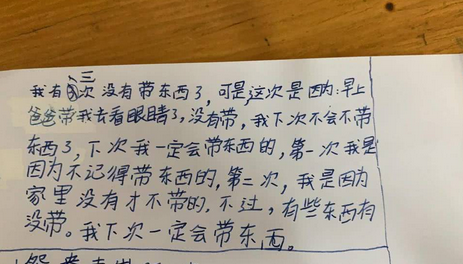 我有三次没有带东西了，可是，这次是因为：早上
爸爸带我去看眼睛了，没有带，我下次不会不带
东西了，下次我一定会带东西的，第一次我是
因为不记得带东西的，第二次，我是因为
家里没有才不带的，不过，有些东西有
没带。我下次一定会带东西。